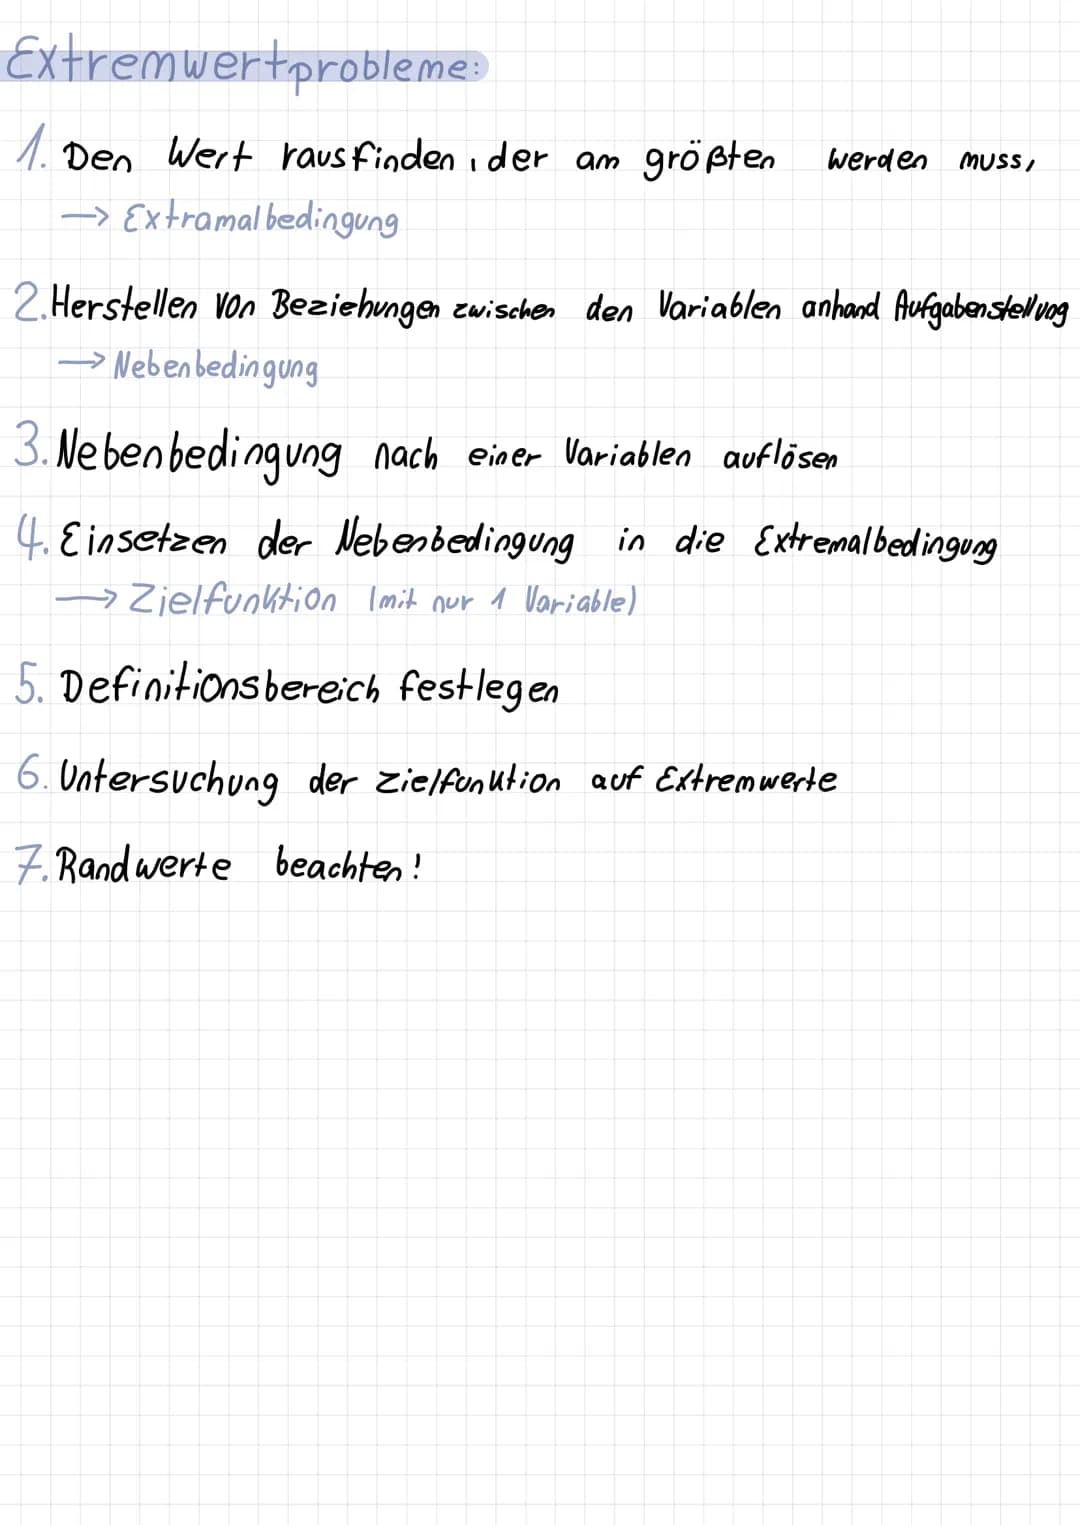 Extremwertprobleme:
1. Den Wert rausfinden, der am größten werden muss,
→ Extramalbedingung
2. Herstellen von Beziehungen zwischen den Variablen anhand Aufgabenstellung
→ Nebenbedingung
3. Nebenbedingung nach einer Variablen auflösen
4. Einsetzen der Nebenbedingung in die Extremalbedingung
→ Zielfunktion (mit nur 1 Variable)
5. Definitionsbereich festlegen
6. Untersuchung der Zielfunktion auf Extremwerte
7. Randwerte beachten!